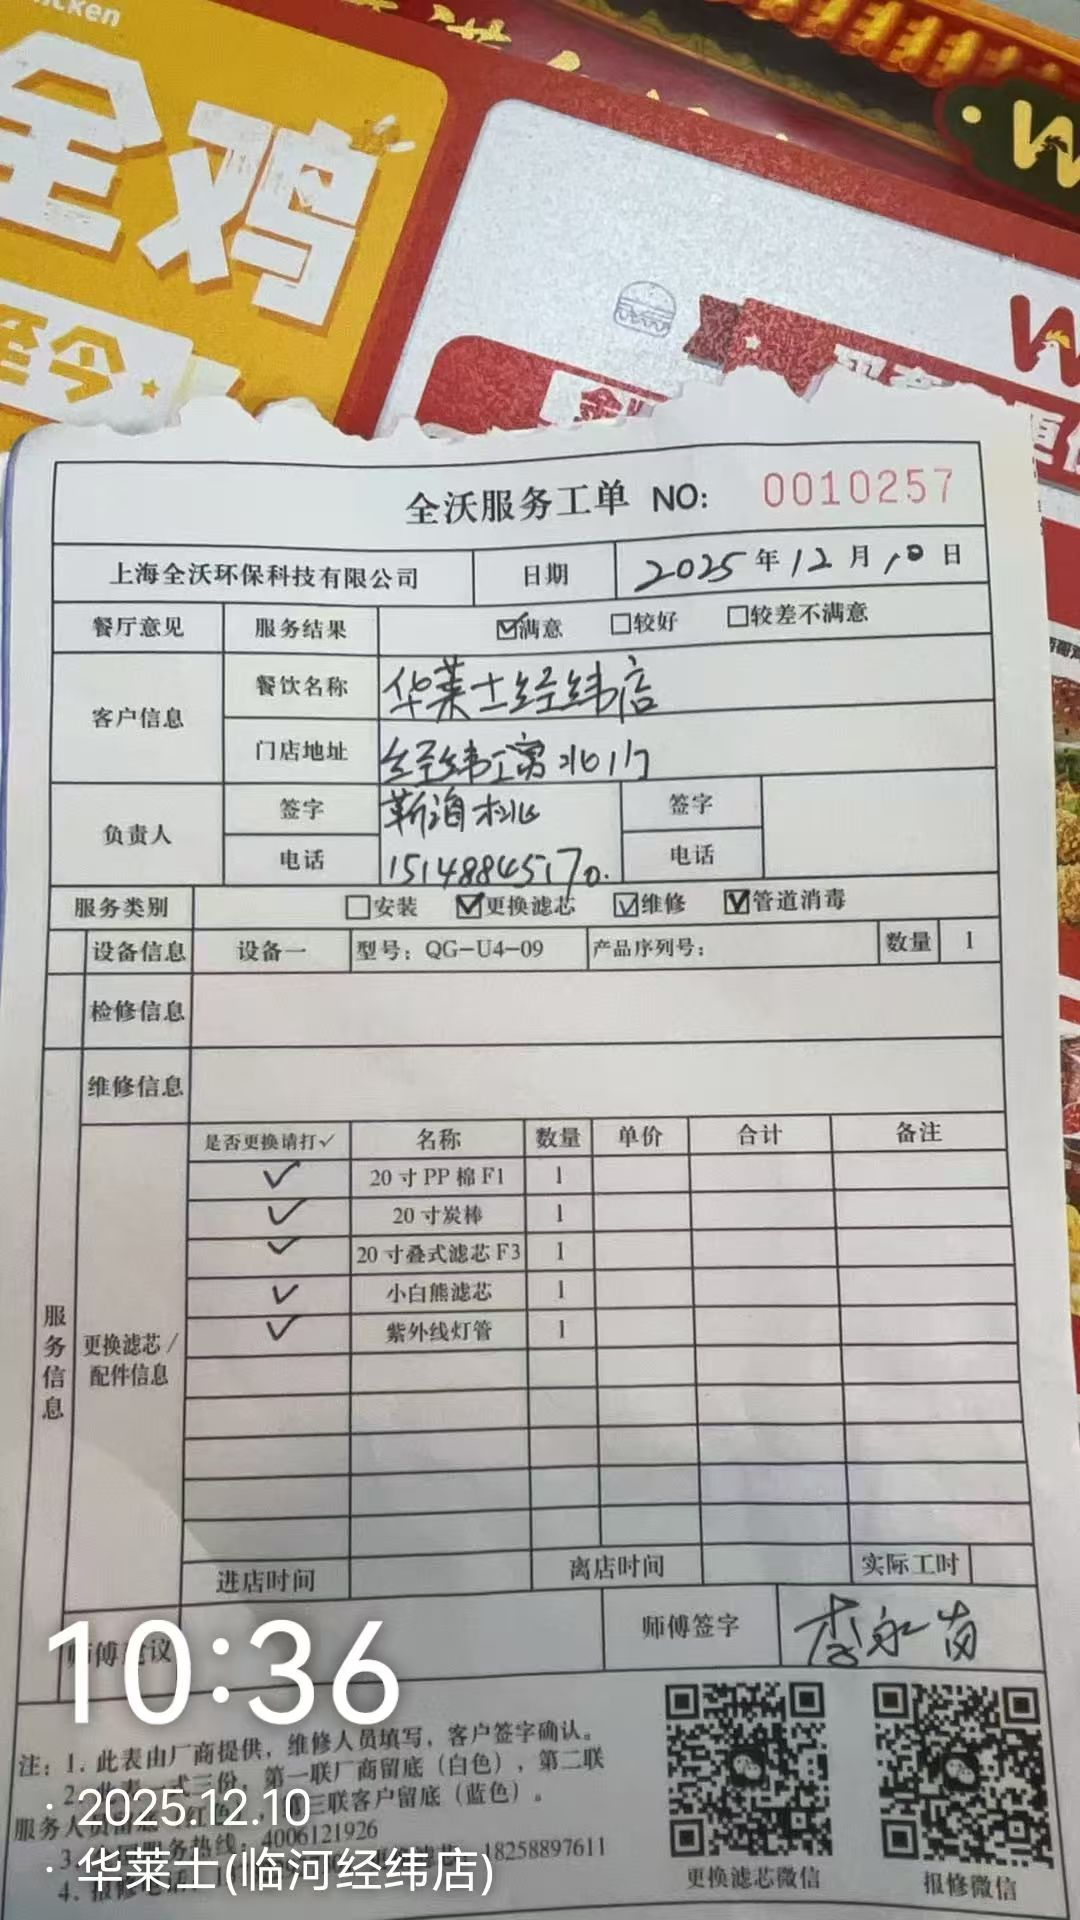 全鸡
至今
全沃服务工单 NO: 0010257
上海全沃环保科技有限公司 日期 2025年12月10日
餐厅意见 服务结果 ☑满意 □较好 □较差不满意
客户信息 餐饮名称 华莱士经纬店
门店地址 经纬公寓北门
负责人 签字 签字
电话 15148845170. 电话
服务类别 □安装 ☑更换滤芯 ☑维修 ☑管道消毒
设备信息 设备一 型号: QG-U4-09 产品序列号: 数量 1
检修信息
维修信息
服务信息
更换滤芯/配件信息
是否更换请打✓ 名称 数量 单价 合计 备注
✓ 20寸PP棉F1 1
✓ 20寸炭棒 1
✓ 20寸叠式滤芯F3 1
✓ 小白熊滤芯 1
✓ 紫外线灯管 1
进店时间 离店时间 实际工时
师傅建议 师傅签字 李永岗
10:36
注: 1. 此表由厂商提供，维修人员填写，客户签字确认。
2. 此表一式三份，第一联厂商留底（白色），第二联
服务人员留底（红色），第三联客户留底（蓝色）。
4006121926
18258897611
4. 报修电话:
· 2025.12.10
· 华莱士(临河经纬店)
更换滤芯微信 报修微信